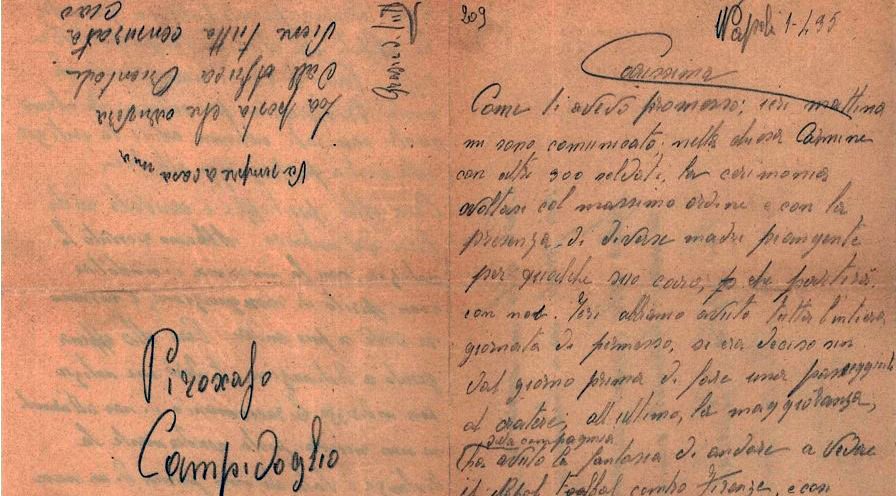 209
Napoli 1-4 35
Carissima
Come ti avevo promesso; ieri mattina
mi sono comunicato, nella chiesa Carmine
con altri 900 soldati, la cerimonia
svoltasi col massimo ordine e con la
presenza di diverse madri piangente
per qualche suo caro, che partirà
con noi. Ieri abbiamo avuto tutta l'intiera
giornata di permesso, si era deciso sin
dal giorno prima di fare una passeggiata
al cratere; all'ultimo, la maggioranza,
della compagnia
ha avuto la fantasia di andare a vedere
il Football contro Firenze, e con
Va sempre a casa mia
La posta che arriverà
dall Affrica Orientale
Viene tutta censurata
Ciao
Campidoglio